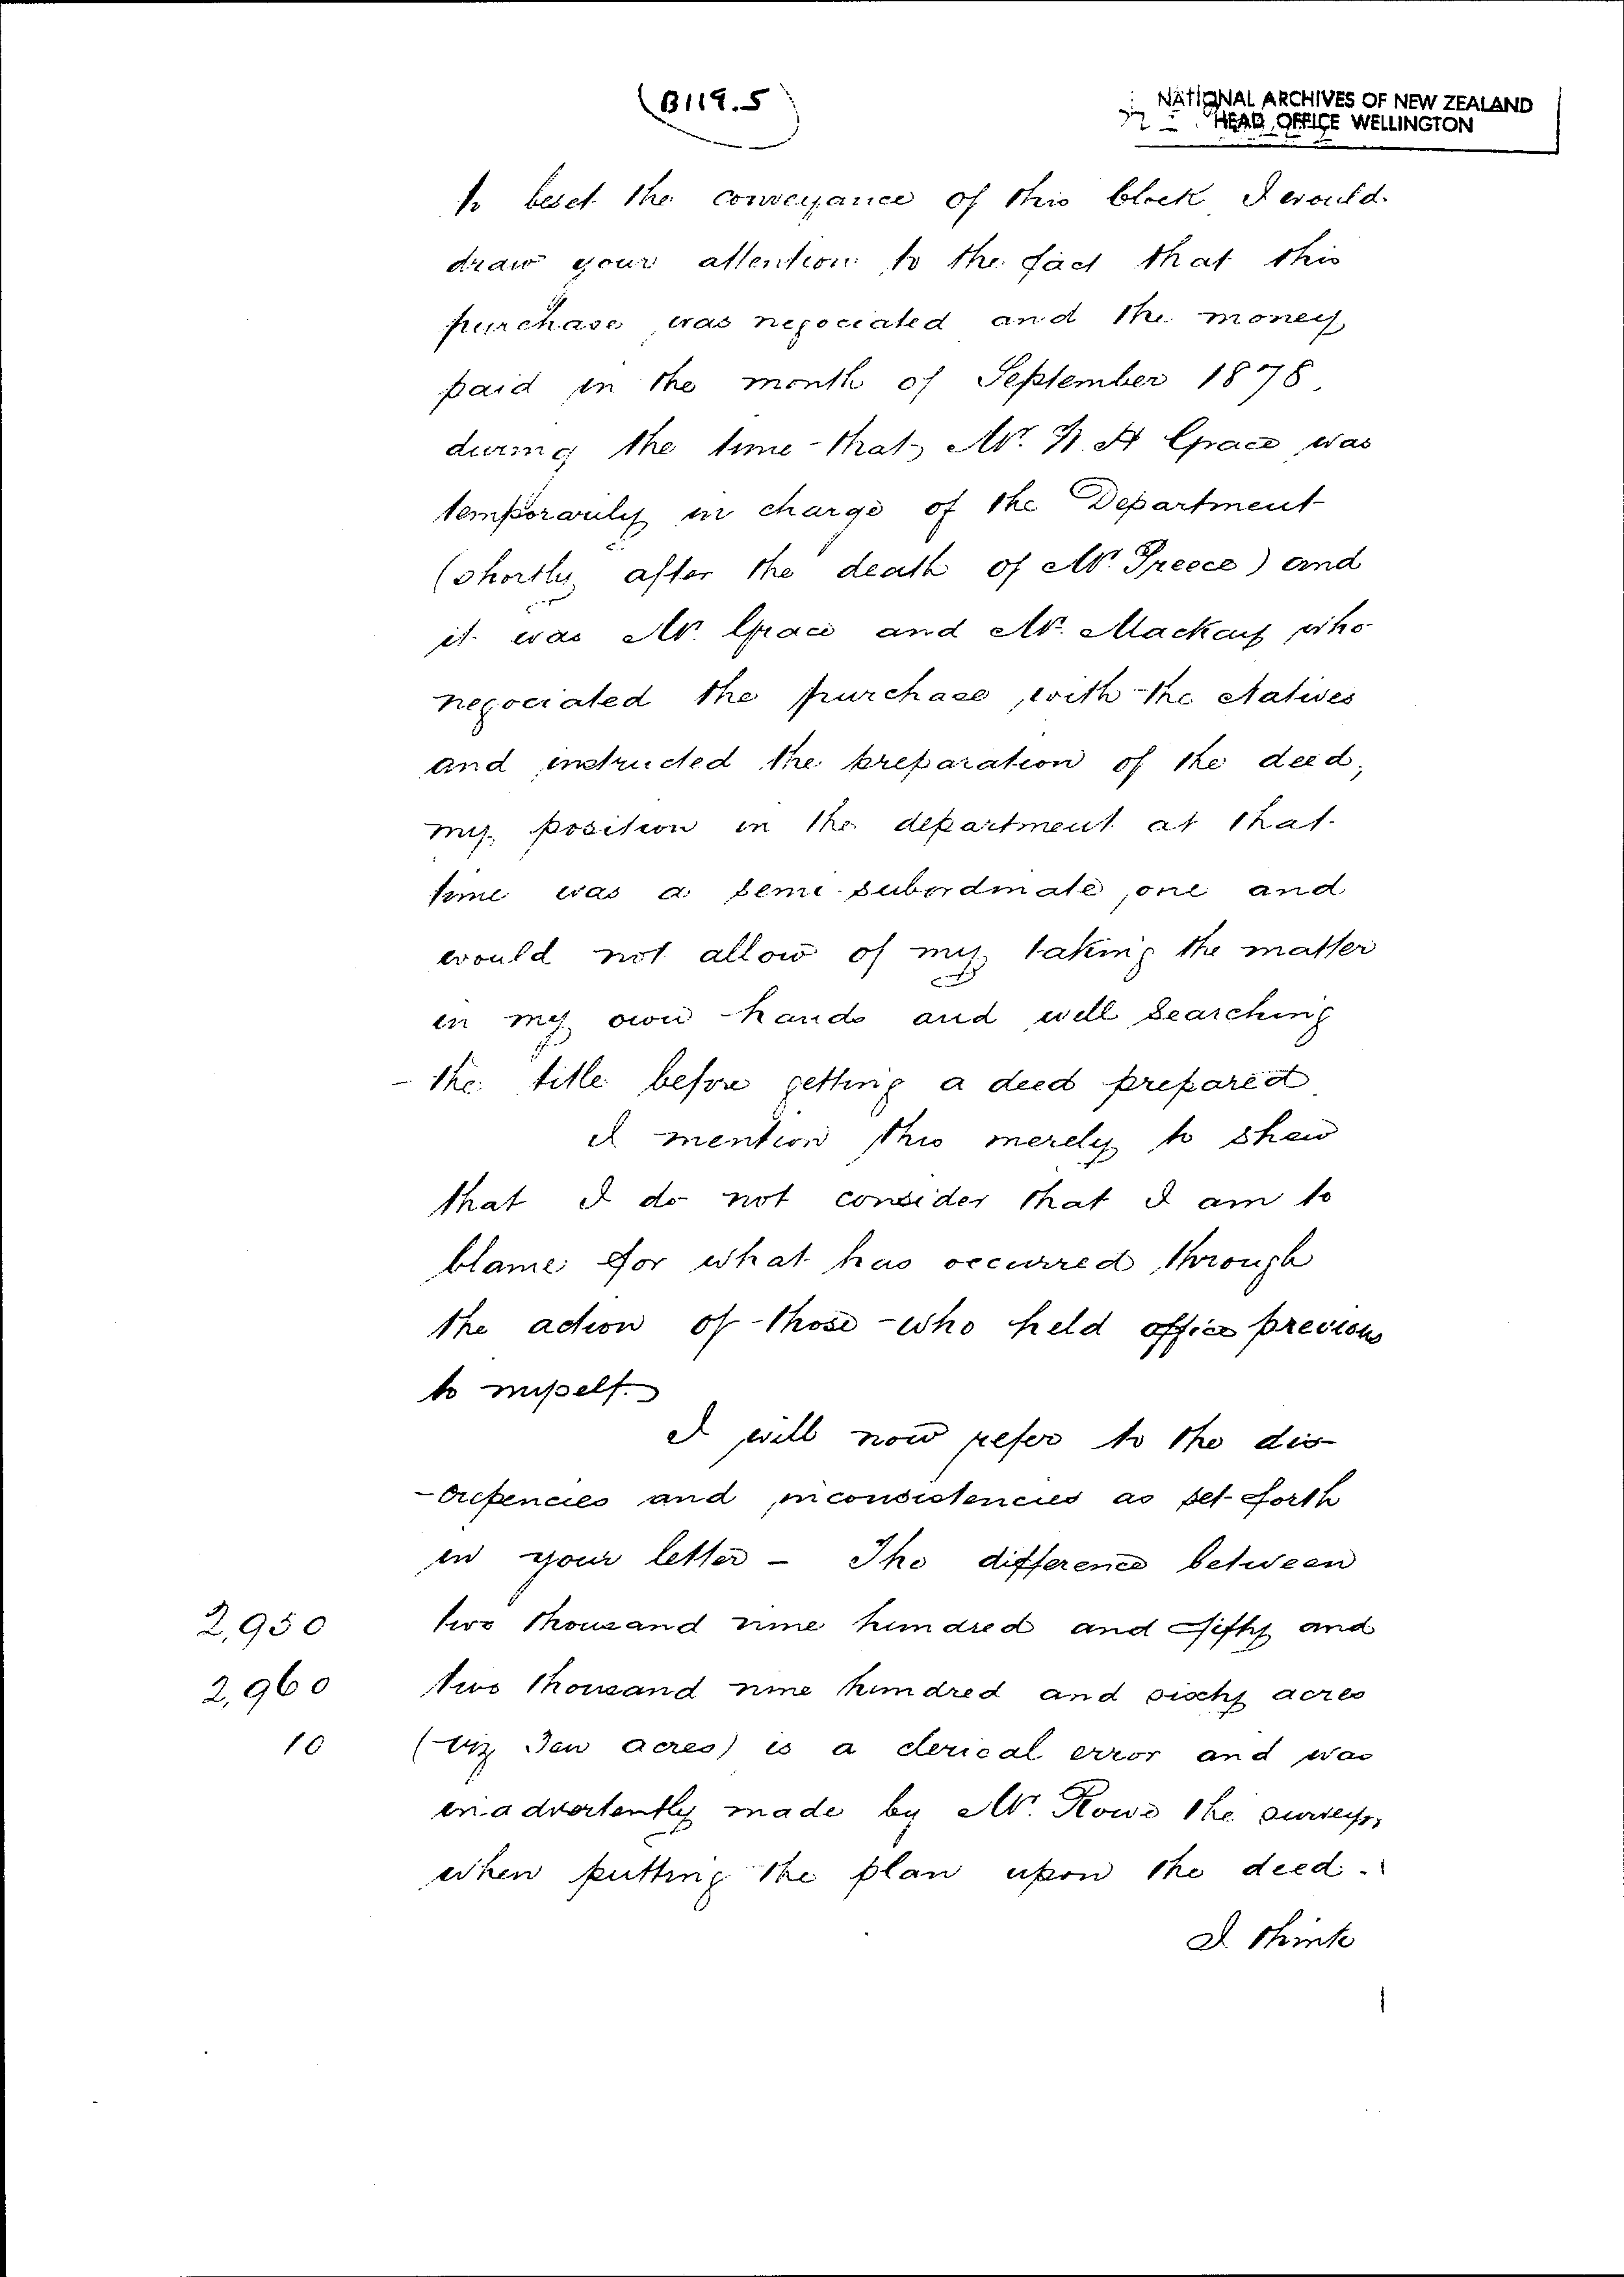 B119.5
NATIONAL ARCHIVES OF NEW ZEALAND
HEAD OFFICE WELLINGTON
to beset the conveyance of this block I would
draw your attention to the fact that this
purchase was negociated and the money
paid in the month of September 1878,
during the time that Mr. W. H Grace was
temporarily in charge of the Department
(shortly after the death of Mr. Preece) and
it was Mr. Grace and Mr. Mackay who
negociated the purchase with the Natives
and instructed the preparation of the deed,
my position in the department at that
time was a semi-subordinate one and
would not allow of my taking the matter
in my own hands and well searching
the title before getting a deed prepared
I mention this merely to shew
that I do not consider that I am to
blame for what has occurred through
the action of those who held office previous
to myself.
I will now refer to the dis-
-crepencies and inconsistencies as set forth
in your letter - The difference between
2,950 two thousand nine hundred and fifty and
2,960 two thousand nine hundred and sixty acres
10 (viz Ten acres) is a clerical error and was
inadvertently made by Mr. Rowe the surveyor,
when putting the plan upon the deed.
I think